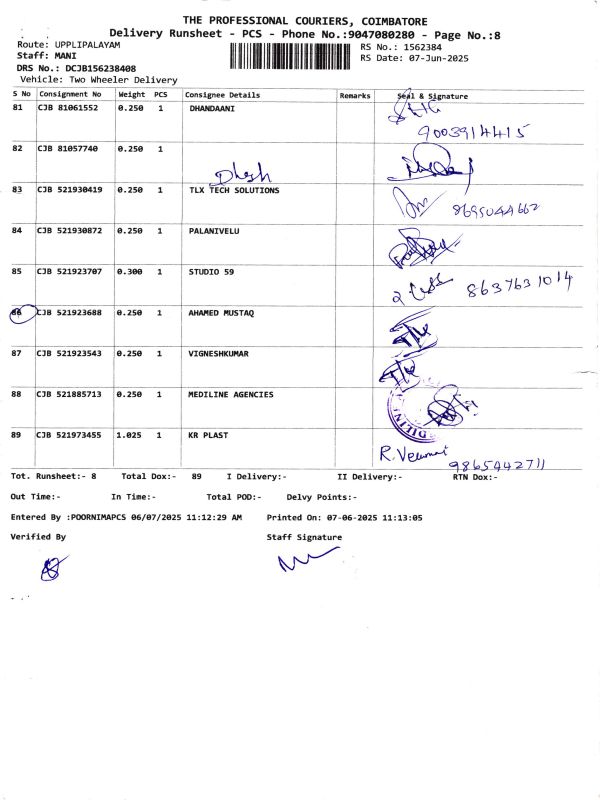 THE PROFESSIONAL COURIERS, COIMBATORE
Delivery Runsheet - PCS - Phone No.:9047080280 - Page No.:8
Route: UPPLIPALAYAM
Staff: MANI
DRS No.: DCJB156238408
Vehicle: Two Wheeler Delivery
RS No.: 1562384
RS Date: 07-Jun-2025
S No Consignment No Weight PCS Consignee Details Remarks Seal & Signature
81 CJB 81061552 0.250 1 DHANDAANI
9003914415
82 CJB 81057740 0.250 1
83 CJB 521930419 0.250 1 TLX TECH SOLUTIONS
84 CJB 521930872 0.250 1 PALANIVELU
85 CJB 521923707 0.300 1 STUDIO 59
8637631014
86 CJB 521923688 0.250 1 AHAMED MUSTAQ
87 CJB 521923543 0.250 1 VIGNESHKUMAR
88 CJB 521885713 0.250 1 MEDILINE AGENCIES
89 CJB 521973455 1.025 1 KR PLAST
9865442711
Tot. Runsheet:- 8 Total Dox:- 89 I Delivery:- II Delivery:- RTN Dox:-
Out Time:- In Time:- Total POD:- Delvy Points:-
Entered By :POORNIMAPCS 06/07/2025 11:12:29 AM Printed On: 07-06-2025 11:13:05
Verified By Staff Signature